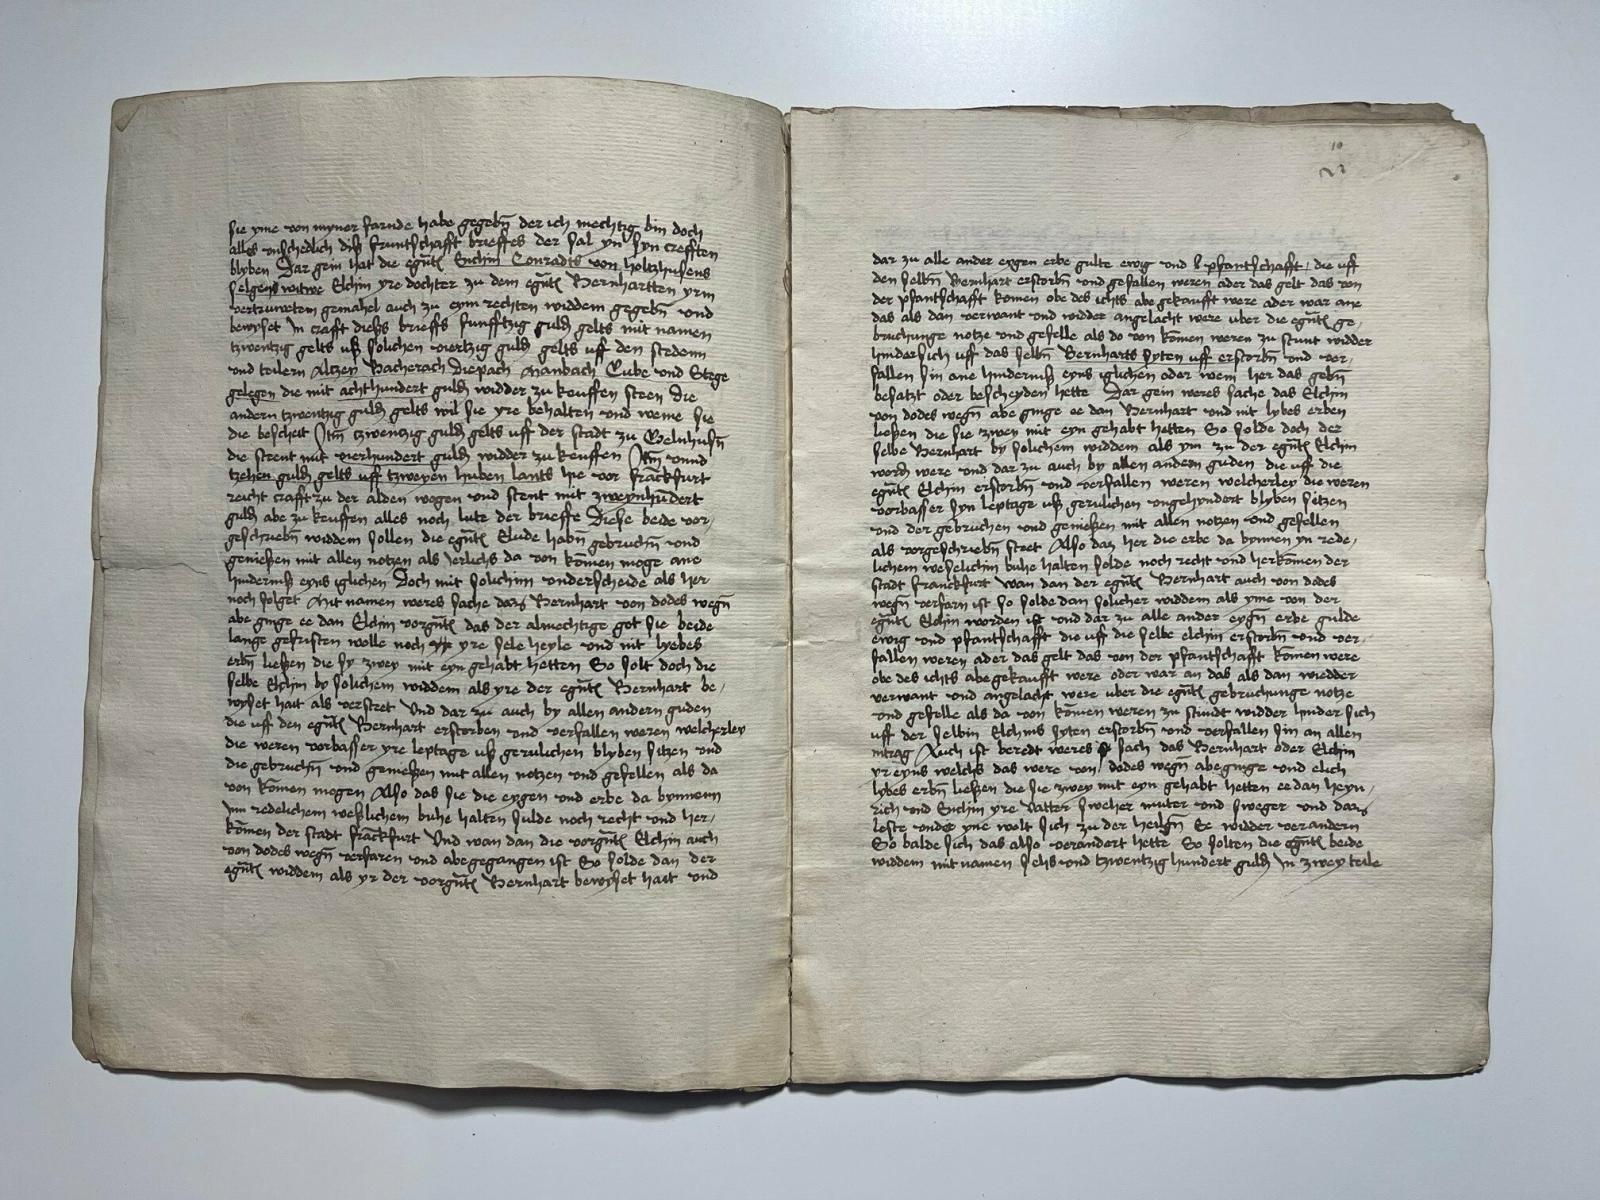 sie yme von myner farnde habe gegebñ der ich mechtig bin doch
alles unschedlich diß fruntschafft brieffes der sal yn syn crefften
blyben Dar gein hat die egñt Enchin Conradts von holtzhusens
selgen witwe Elchin yre dochter zu dem egñt Bernhartten yrm
vertruwetem gemahel auch zu eym rechten widdem gegebñ und
bewyset Jn crafft dießs brieffs funfftzig guld gelts mit namen
tzwentzig gelts uß solichen viertzig guld gelts uff den stedenn
und teilern Altzey Bacherach Diepach Manbach Cube und Stege
gelegen die mit achthundert guld widder zu keuffen steen die
andern tzwentzig guld gelts wil sie yre behalten und weme sie
die bescheit Jtm tzwentzig guld gelts uff der stadt zu Geilnhusñ
die steent mit vierhundert guld widder zu keuffen Jtm unnd
tzehen guld gelts uff tzweyen huben lants hie vor franckfurt
reicht crafft zu der alden wogen und stent mit zweynhundert
guld abe zu keuffen alles noch lute der brieffe Diese beide vor/
geschriebñ widdem sollen die egñt Elude habñ gebruchñ und
genießen mit allen notzen als verlichs da von komen moge ane
hinderniß eyns iglichen Doch mit solichem underscheide als her
noch folget Mit namen weres sache daz Bernhart von dodes wegñ
abe ginge ee dan Elchin vorgñt das der almechtige got sie beide
lange gefristen wolle noch yre sele heyle und mit lyebes
erbñ ließen die sy zwey mit eyn gehabt hetten So solt doch die
selbe Elchin by solichem widdem als yre der egñt Bernhart be/
wyset hait als versteet Und dar zu auch by allen andern guden
die uff den egñt Bernhart erstorben und verfallen weren welcherley
die weren vorbasser yre leptage uß gerulichen blyben sitzen und
die gebruchñ und genießen mit allen notzen und gefellen als da
von komen mogen Also das sie die eygen und erbe da bynnenn
inn redelichem weßlichem buhe halten sulde noch recht und her/
komen der stadt franckfurt Und wan dan die vorgñt Elchin auch
von dodes wegñ verfaren und abegegangen ist So solde dan der
egñt widdem als yr der vorgñt Bernhart bewyset hait und
10
dar zu alle ander eygen erbe gulte ewig und pfantschafft, die uff
den selbñ Bernhart erstorbñ und gefallen weren ader das gelt das von
der pfantschafft komen obe des ichts abegekaufft were ader war ane
das als dan verwant und widder angelacht were uber die egñt ge/
bruchunge notze und gefelle als do von komen weren zu stunt widder
hindersich uff das selbñ Bernharts syten uff erstorbñ und ver/
fallen sin ane hinderniß eyns iglichen oder wem her das gebñ
besatzt oder bescheyden hette Dar gein weres sache das Elchin
von dodes wegñ abe ginge ee dan Bernhart und mit lybes erben
ließen die sie zwey mit eyn gehabt hetten So solde doch der
selbe Bernhart by solichem widdem als ym zu der egñt Elchin
word were und dar zu auch by allen andern guden die uff die
egñt Elchin erstorbñ und verfallen weren welcherley die weren
vorbasser syn leptage uß gerulichen ungehyndert blyben sitzen
und der gebruchen und genießen mit allen notzen und gefellen
als vorgeschriebñ steet Also daz her die erbe da bynnen yn rede/
lichem weselichm buhe halten solde noch recht und herkomen der
stadt franckfurt wan dan der egñt Bernhart auch von dodes
wegñ verfarn ist So solde dan solicher widdem als yme von der
egñt Elchin worden ist und dar zu alle ander eygñ erbe gulde
ewig und pfantschafft die uff die selbe elchin erstorbñ und ver/
fallen weren ader das gelt das von der pfantschafft komen were
obe des ichts abegekaufft were oder war an das als dan wiedder
verwant und angelacht were uber die egñt gebruchunge notze
und gefelle als da von komen weren zu stundt widder hinder sich
uff der selbin Elchins syten erstorbñ und verfallen sin an allen
intrag Auch ist beredt weres sach das Bernhart oder Elchin
yr eyns welchs das were von dodes wegñ abeginge und elich
lybes erbñ ließen die sie zwey mit eyn gehabt hetten ee dan heyn/
rich und Enchin yre vatter sweher muter und sweger und daz
leste under yne wolt sich zu der heilgñ Ee widder verandern
So balde sich das also verandert hette So solten die egñt beide
widdem mit namen sehs und tzwentzig hundert guld Jn zwey teile